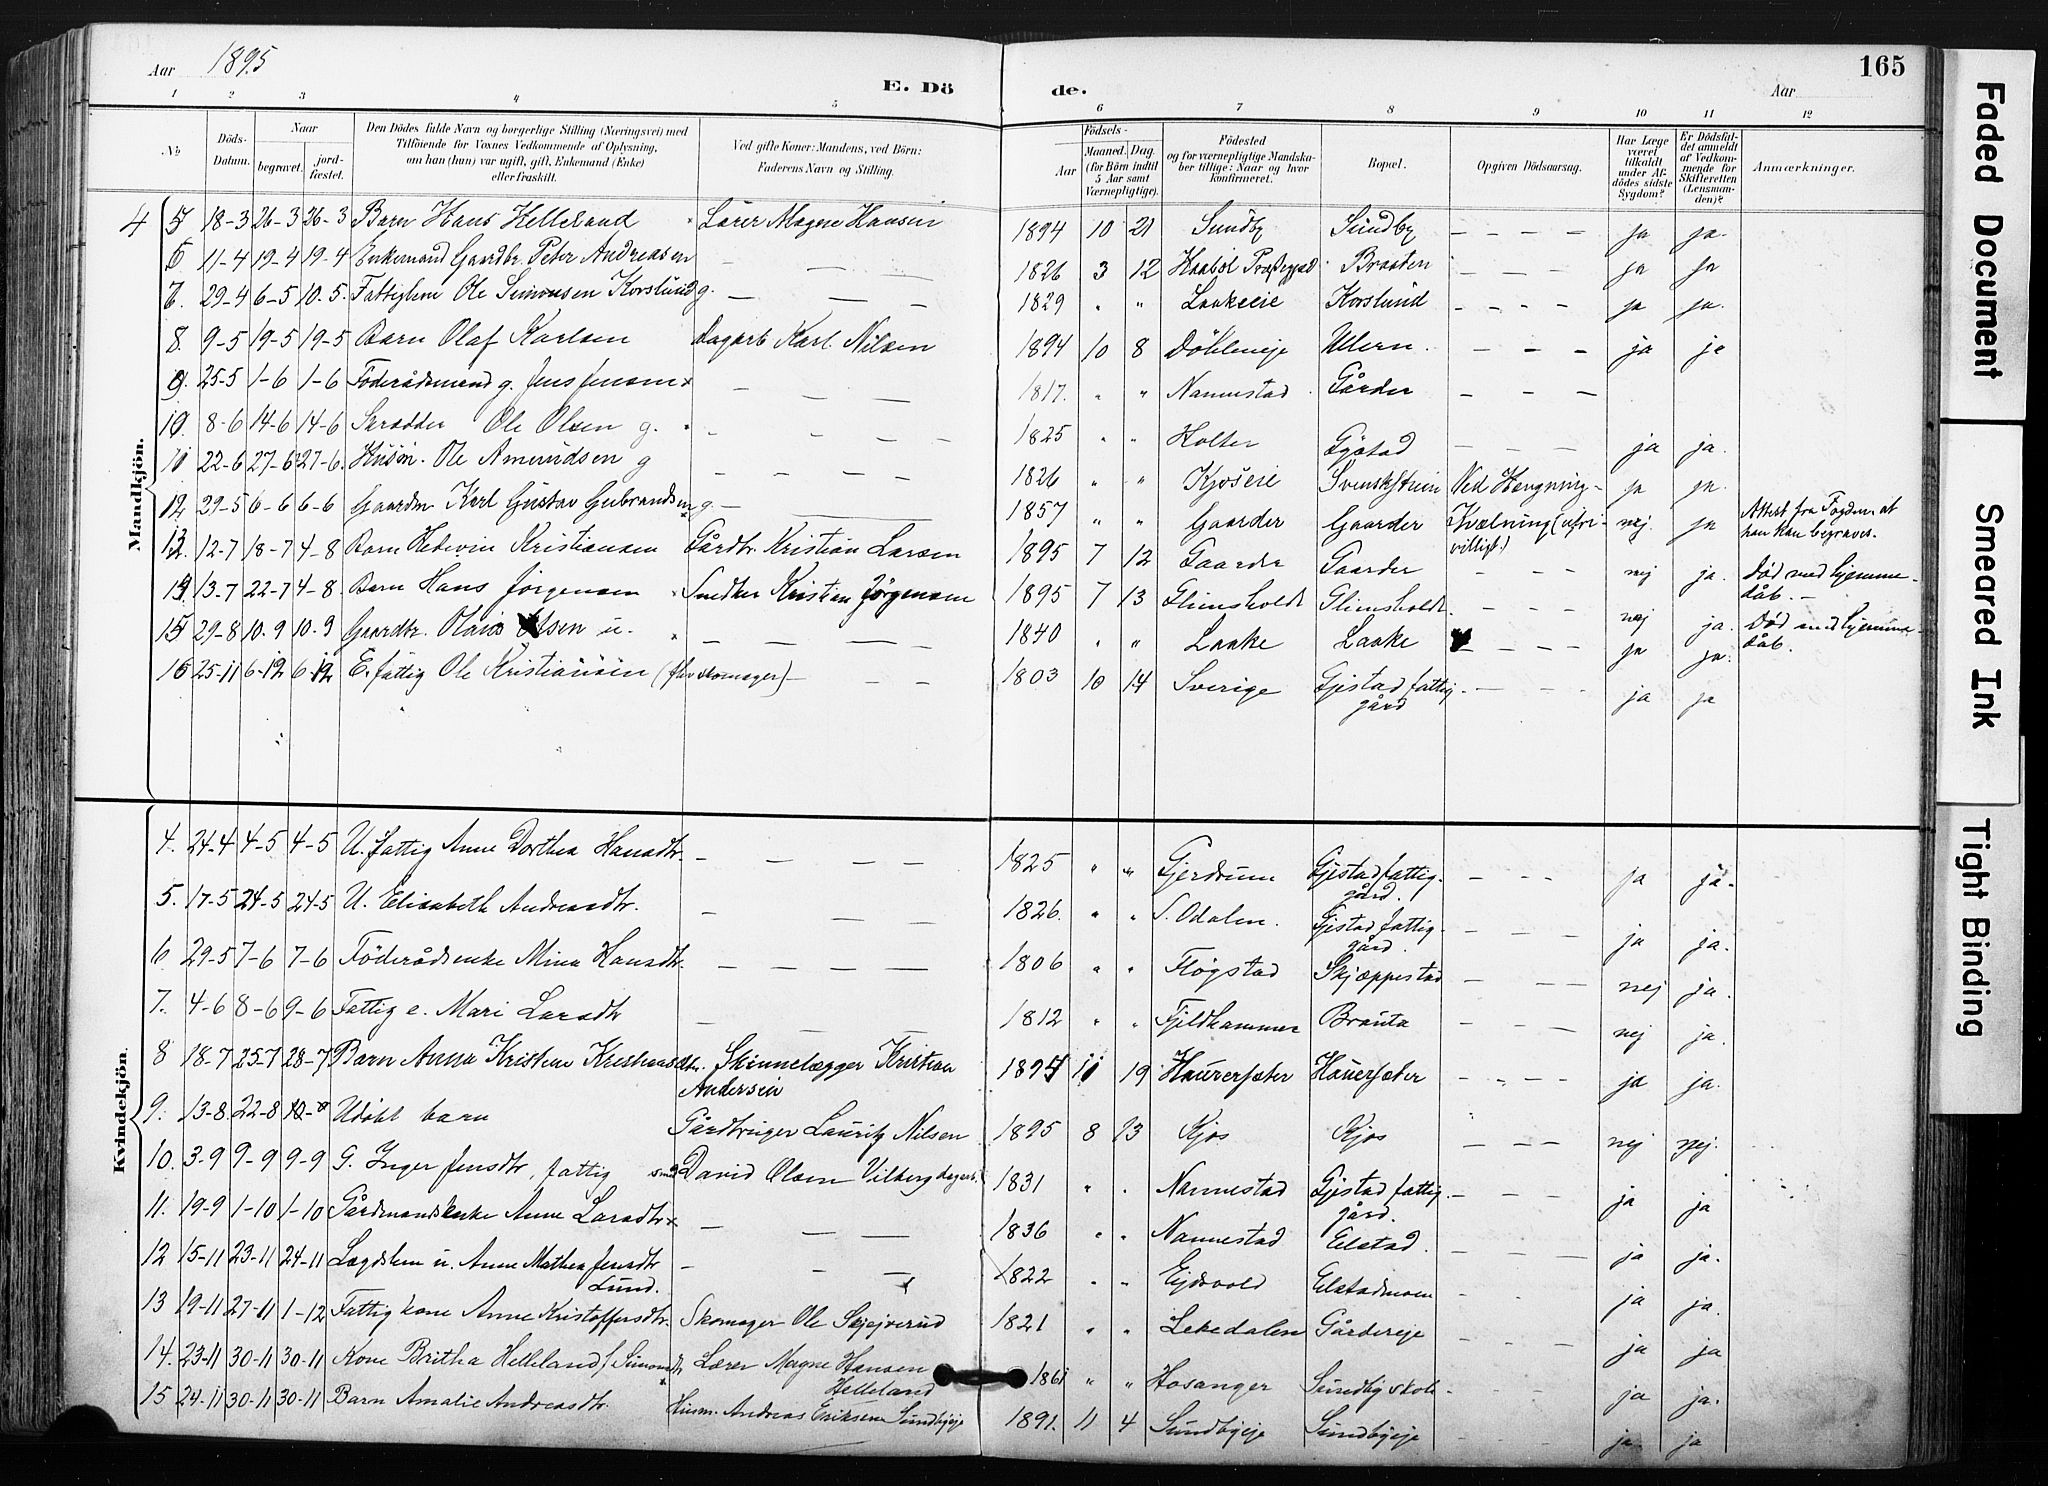 Aar 1895
E. Döde.
165
Aar
1 2 3 4 5 6 7 8 9 10 11 12
No
Döds-Datum.
Naar
begravet.
jordfæstet.
Den Dödes fulde Navn og borgerlige Stilling (Næringsvei) med
Tilföiende for Voxnes Vedkommende af Oplysning,
om han (hun) var ugift, gift, Enkemand (Enke)
eller fraskilt.
Ved gifte Koner: Mandens, ved Börn:
Faderens Navn og Stilling.
Födsels-
Aar
Maaned. Dag.
(for Börn indtil
5 Aar samt
Værnepligtige).
Födested
og for værnepligtige Mandska-
ber tillige: Naar og hvor
konfirmeret.
Bopæl.
Opgiven Dödsaarsag.
Har Læge
været
tilkaldt
under Af-
dödes sidste
Sygdom?
Er Dödsfal-
det anmeldt
af Vedkom-
mende for
Skifteretten
(Lensman-
den)?
Anmærkninger.
Mandkjön.
4 5 18-3 26-3 26-3 Barn Hans Helleland Lærer Magne Hansen 1894 10 21 Sundby Sundby — — — — ja ja.
6 11-4 19-4 19-4 Enkemand Gaardbr. Peter Andreasen — — — 1826 3 12 Braaten — — — — ja ja
7. 29-4 6-5 10-5. Fattiglem Ole Simonsen Korslund g. — — — 1829 " " Laakeeie Korslund — — — — ja ja.
8. 9-5 19-5 19-5 Barn Olaf Karlsen Dagarb Karl Nilsen 1894 10 8 Döhleneje Ullern. — — — ja ja
9. 25-5 1-6 1-6 Föderådsmand g. Jens Jensen — — — 1817. " " Nannestad Gårder — — —
10. 8-6 14-6 14-6 Skrædder Ole Olsen g. — — — 1825 " " Holter Gjöstad — — — ja ja.
11 22-6 27-6 27-6. Husm. Ole Amundsen g — — — 1826 " " Kjoseie Svenskstuen Ved Hengning — ja ja.
12 29-5 6-6 6-6 Gaardm Karl Gustav Gulbrandsen g. — — — 1857 " " Gaarder Gaarder Kvælning (ufri-
villigt.) nej. ja Attest fra Fogden at
han kan begraves.
13 12-7 18-7 4-8 Barn Hedevin Kristiansen Gårdbr. Kristian Larsen 1895 7 12 Gaarder Gaarder — — — nej ja. Död med hjemme-
dåb. —
14 13-7 22-7 4-8 Barn Hans Jörgensen Snedker Kristian Jörgensen 1895 7 13 Glimsholdt Glimsholdt. — — — nej ja. Död med hjemme-
dåb.
15 29-8 10.9 10.9 Gaardbr. Olaus Olsen u. — — — 1840 " " Laake Laake — — — ja ja.
16 25-11 6-12 6-12 E. fattig Ole Kristiansen (f.hv skomager) — — — 1803 10 14 Sverige Gjestad fattig-
gård — — ja ja
Kvindekjön.
4. 24-4 4-5 4-5 U. fattig Anne Dorthea Hansdtr. — — — — 1825 " " Gjerdrum Gjestad fattig-
gård. — — — ja ja.
5. 17-5 24-5 24-5 U. Elisabeth Andreasdtr. — — — 1826. " " S. Odalen. Gjestad fattig-
gård. — — — ja ja.
6 29-5 7-6 7-6 Föderådsenke Mina Hansdtr. — — — — 1806 " " Flögstad Skjæppestad — — — nej ja.
7. 4-6 8-6 9-6 Fattig e. Mari Larsdtr — — — 1812 " " Fjeldhammer Brauta — — — nej ja.
8 18-7 25-7 28-7 Barn Anna Kristine Kristiansdtr. Skinnelægger Kristian
Andersen 1894 11 19 Haurersæter Hauersæter — — — ja ja.
9. 13-8 22-8 Udöbt barn Gårdbruger Lauritz Nilsen 1895 8 13 Kjos Kjos — — — nej nej.
10. 3-9 9-9 9-9 G. Inger Jensdtr, fattig David Olsen Vilberg dagarb. 1831 " " Nannestad Gjestad fattig-
gård. — — — ja ja
11. 19-9 1-10 1-10 Gårdmandsenke Anne Larsdtr — — — 1836 " " Nannestad Elstad. — — — ja ja.
12 15-11 23-11 24-11 Lægdslem u. Anne Mathea Jensdtr
Lund. — — — 1822 " " Eidsvold Elstadmoen — — ja ja.
13 19-11 27-11 1-12 Fattig kone Anne Kristoffersdtr. Skomager Ole Skjejverud 1821 " " Lekedalen Gårdereje — — — ja ja
14. 23-11 30-11 30-11 Kone Britha Helleland f. Simonsdtr Lærer Magne Hansen
Helleland 1861 " " Hosanger Sundby skole — — — ja ja.
15 24-11 30-11 30-11 Barn Amalie Andreasdtr. Husm. Andreas Eriksen Sundbyeje 1891. 11 4 Sundbyeje Sundbyeje — — — ja ja
Faded Document
Smeared Ink
Tight Binding